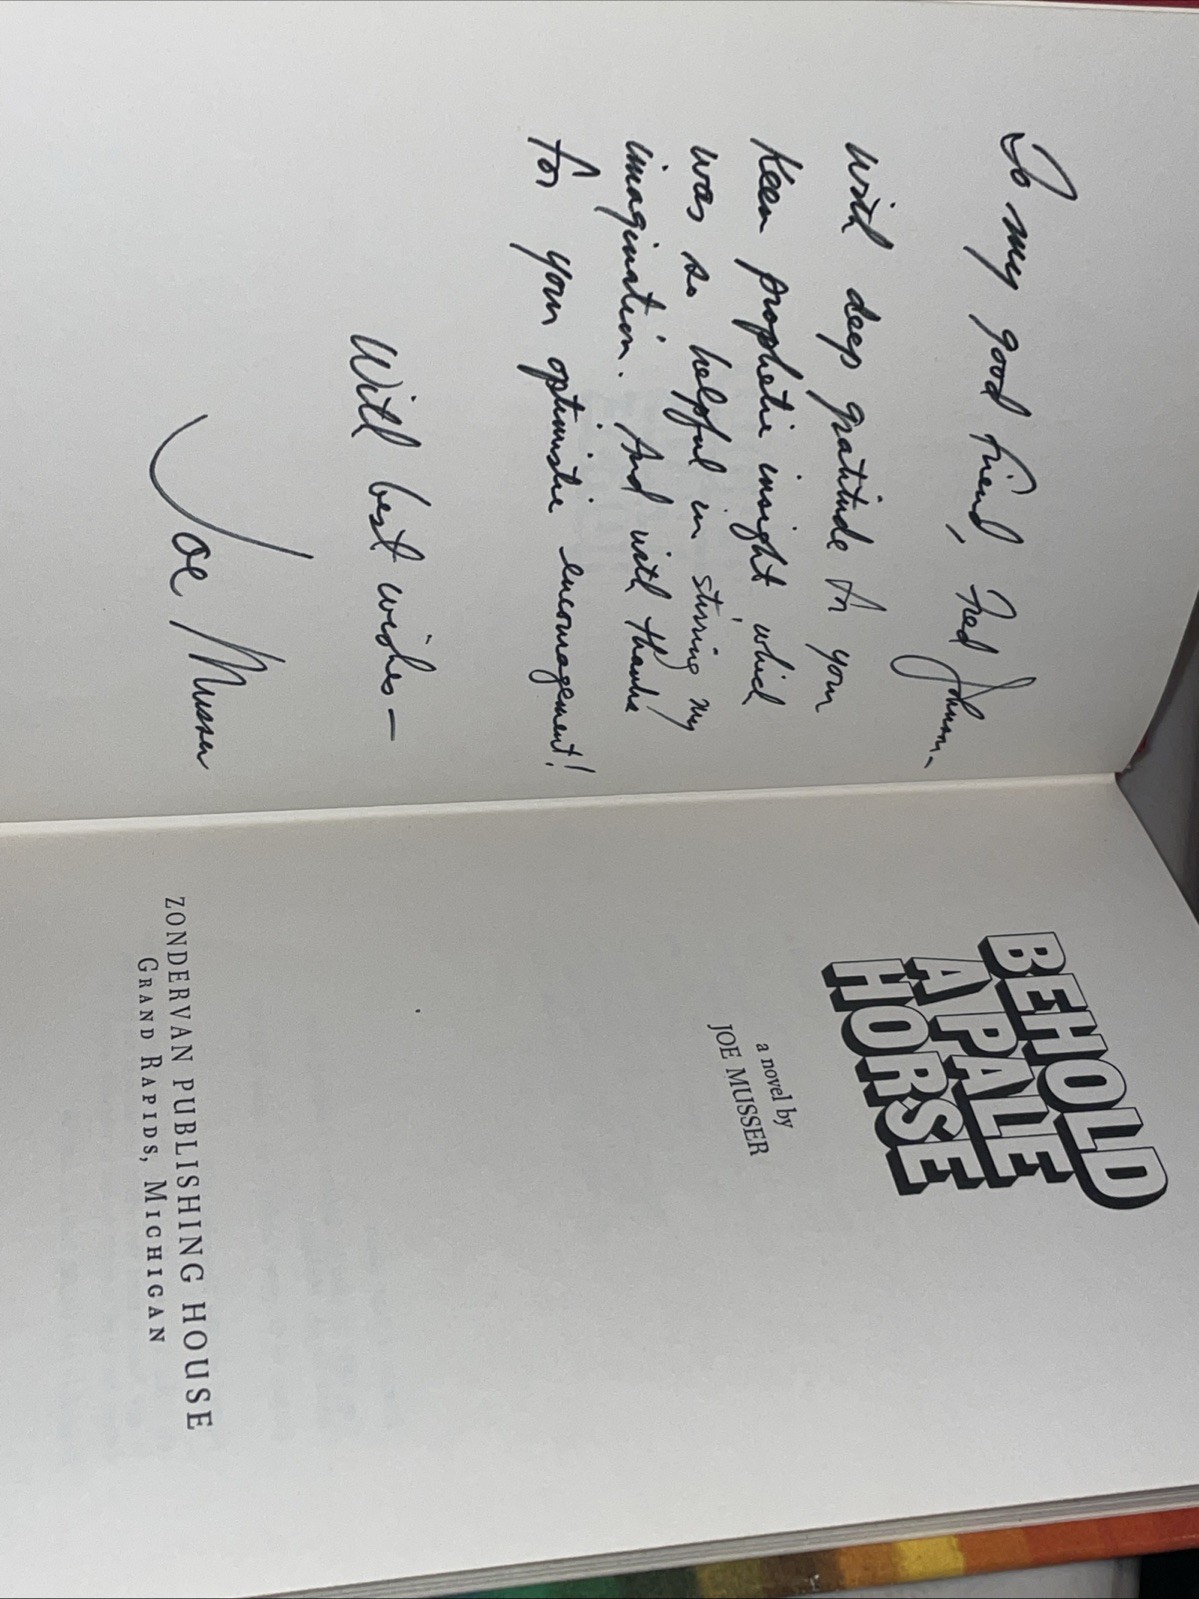 To my good friend, Fred Johnson-
with deep gratitude for your
keen prophetic insight which
was so helpful in stirring my
imagination. And with thanks
for your optimistic encouragement!
With best wishes—
Joe Musser
BEHOLD
A PALE
HORSE
a novel by
JOE MUSSER
ZONDERVAN PUBLISHING HOUSE
GRAND RAPIDS, MICHIGAN